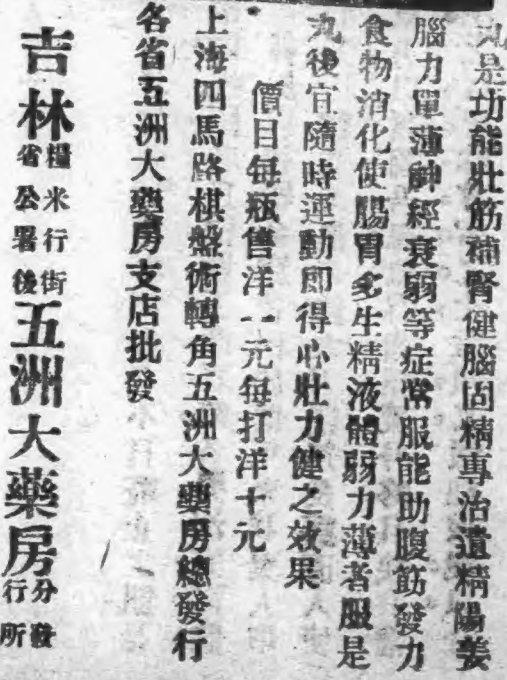 丸是功能壯筋補腎健腦固精專治遺精陽萎
腦力單薄神經衰弱等症常服能助腹筋發力
食物消化使腸胃多生精液體弱力薄者服是
丸後宜隨時運動即得心壯力健之效果
價目每瓶售洋一元每打洋十元
上海四馬路棋盤街轉角五洲大藥房總發行
各省五洲大藥房支店批發
吉林
糧米行街
省公署後
五洲大藥房
分發
行所